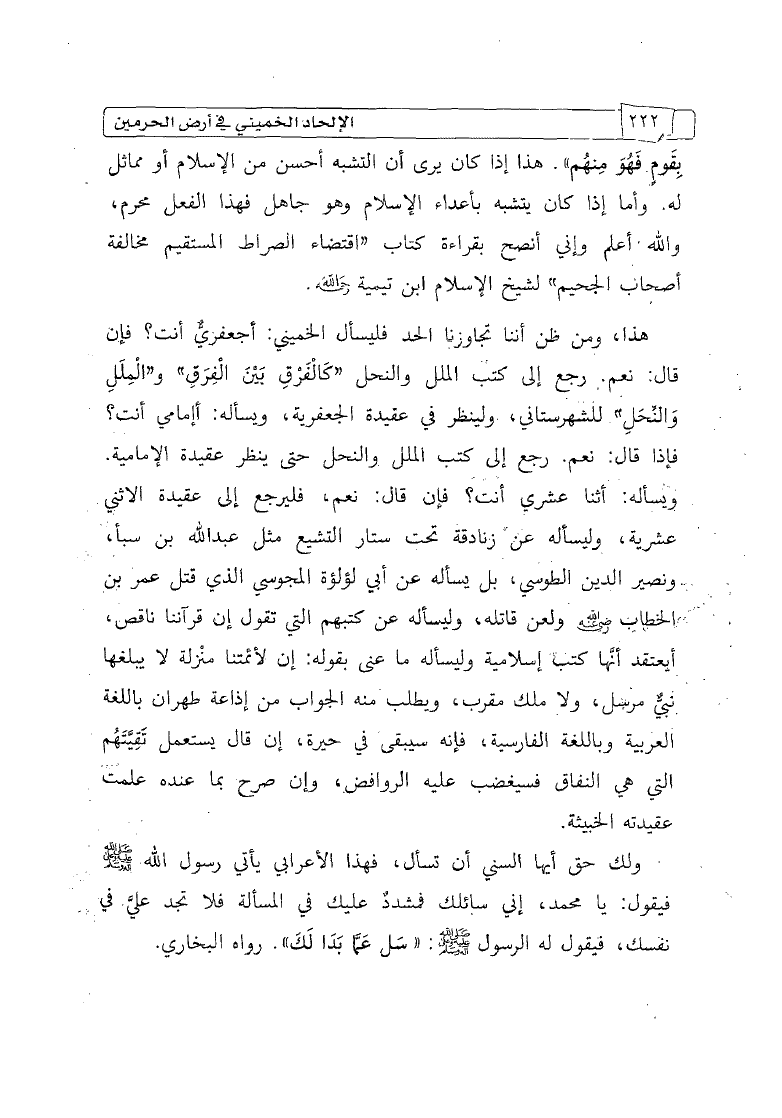 ٢٢٢ الإلحاد الخميني في أرض الحرمين
بِقَومٍ فَهُوَ مِنهُم». هذا إذا كان يرى أن التشبه أحسن من الإسلام أو مماثل
له. وأما إذا كان يتشبه بأعداء الإسلام وهو جاهل فهذا الفعل محرم،
والله أعلم وإني أنصح بقراءة كتاب «اقتضاء الصراط المستقيم مخالفة
أصحاب الجحيم» لشيخ الإسلام ابن تيمية رحمه الله.
هذا، ومن ظن أننا تجاوزنا الحد فليسأل الخميني: أجعفريٌّ أنت؟ فإن
قال: نعم. رجع إلى كتب الملل والنحل «كَالْفَرْقِ بَيْنَ الْفِرَقِ» و«الْمِلَلِ
وَالنَّحَلِ» للشهرستاني، ولينظر في عقيدة الجعفرية، ويسأله: أإمامي أنت؟
فإذا قال: نعم. رجع إلى كتب الملل والنحل حتى ينظر عقيدة الإمامية.
ويسأله: أثنا عشري أنت؟ فإن قال: نعم، فليرجع إلى عقيدة الاثني
عشرية، وليسأله عن زنادقة تحت ستار التشيع مثل عبدالله بن سبأ،
ونصير الدين الطوسي، بل يسأله عن أبي لؤلؤة المجوسي الذي قتل عمر بن
الخطاب رضي الله عنه ولعن قاتله، وليسأله عن كتبهم التي تقول إن قرآننا ناقص،
أيعتقد أنَّها كتب إسلامية وليسأله ما عنى بقوله: إن لأئمتنا منْزلة لا يبلغها
نبيٌّ مرسل، ولا ملك مقرب، ويطلب منه الجواب من إذاعة طهران باللغة
العربية وباللغة الفارسية، فإنه سيبقى في حيرة، إن قال يستعمل تَقِيَّتَهُم
التي هي النفاق فسيغضب عليه الروافض، وإن صرح بما عنده علمت
عقيدته الخبيثة.
ولك حق أيها السني أن تسأل، فهذا الأعرابي يأتي رسول الله ﷺ
فيقول: يا محمد، إني سائلك فمشددٌ عليك في المسألة فلا تجد عليَّ في
نفسك، فيقول له الرسول ﷺ: «سَل عَمَّا بَدَا لَكَ». رواه البخاري.